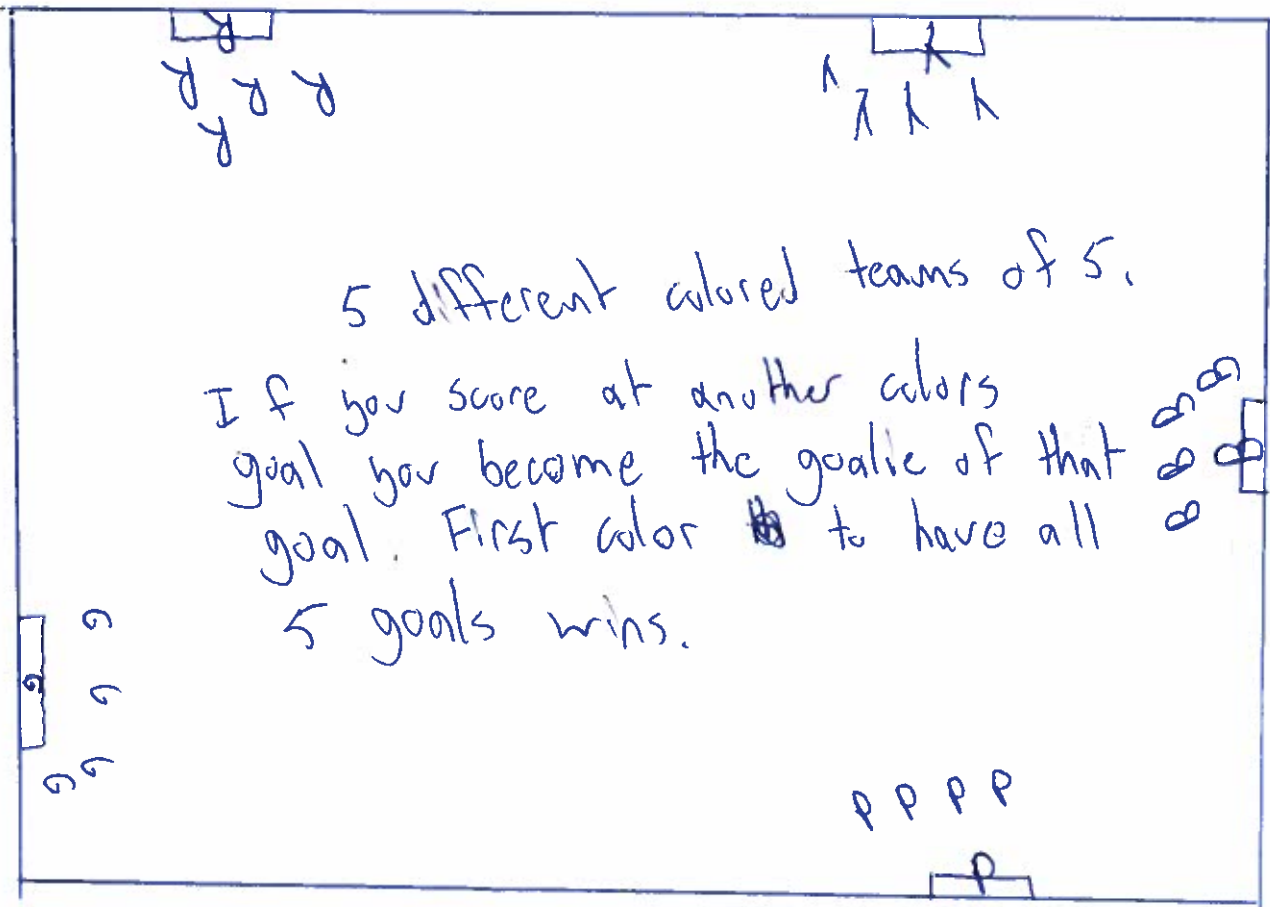 R
R R R
R
Y
Y Y Y Y
5 different colored teams of 5.
If you score at another colors
goal you become the goalie of that
goal. First color to have all
5 goals wins.
B
B
B B
B
G
G
G
G G
P P P P
P